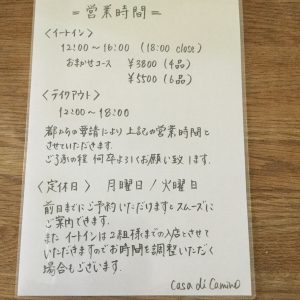 = 営業時間 =
〈イートイン〉
12:00〜16:00 (18:00 close)
おまかせコース ¥3800 (4品)
¥5500 (6品)
〈テイクアウト〉
12:00〜18:00
都からの要請により上記の営業時間と
させていただきます。
ご了承の程 何卒よろしくお願い致します。
〈定休日〉 月曜日 / 火曜日
前日までにご予約いただけますとスムーズに
ご案内できます。
また イートインは2組様までの入店とさせて
いただきますのでお時間を調整いただく
場合もございます。
casa di Camino